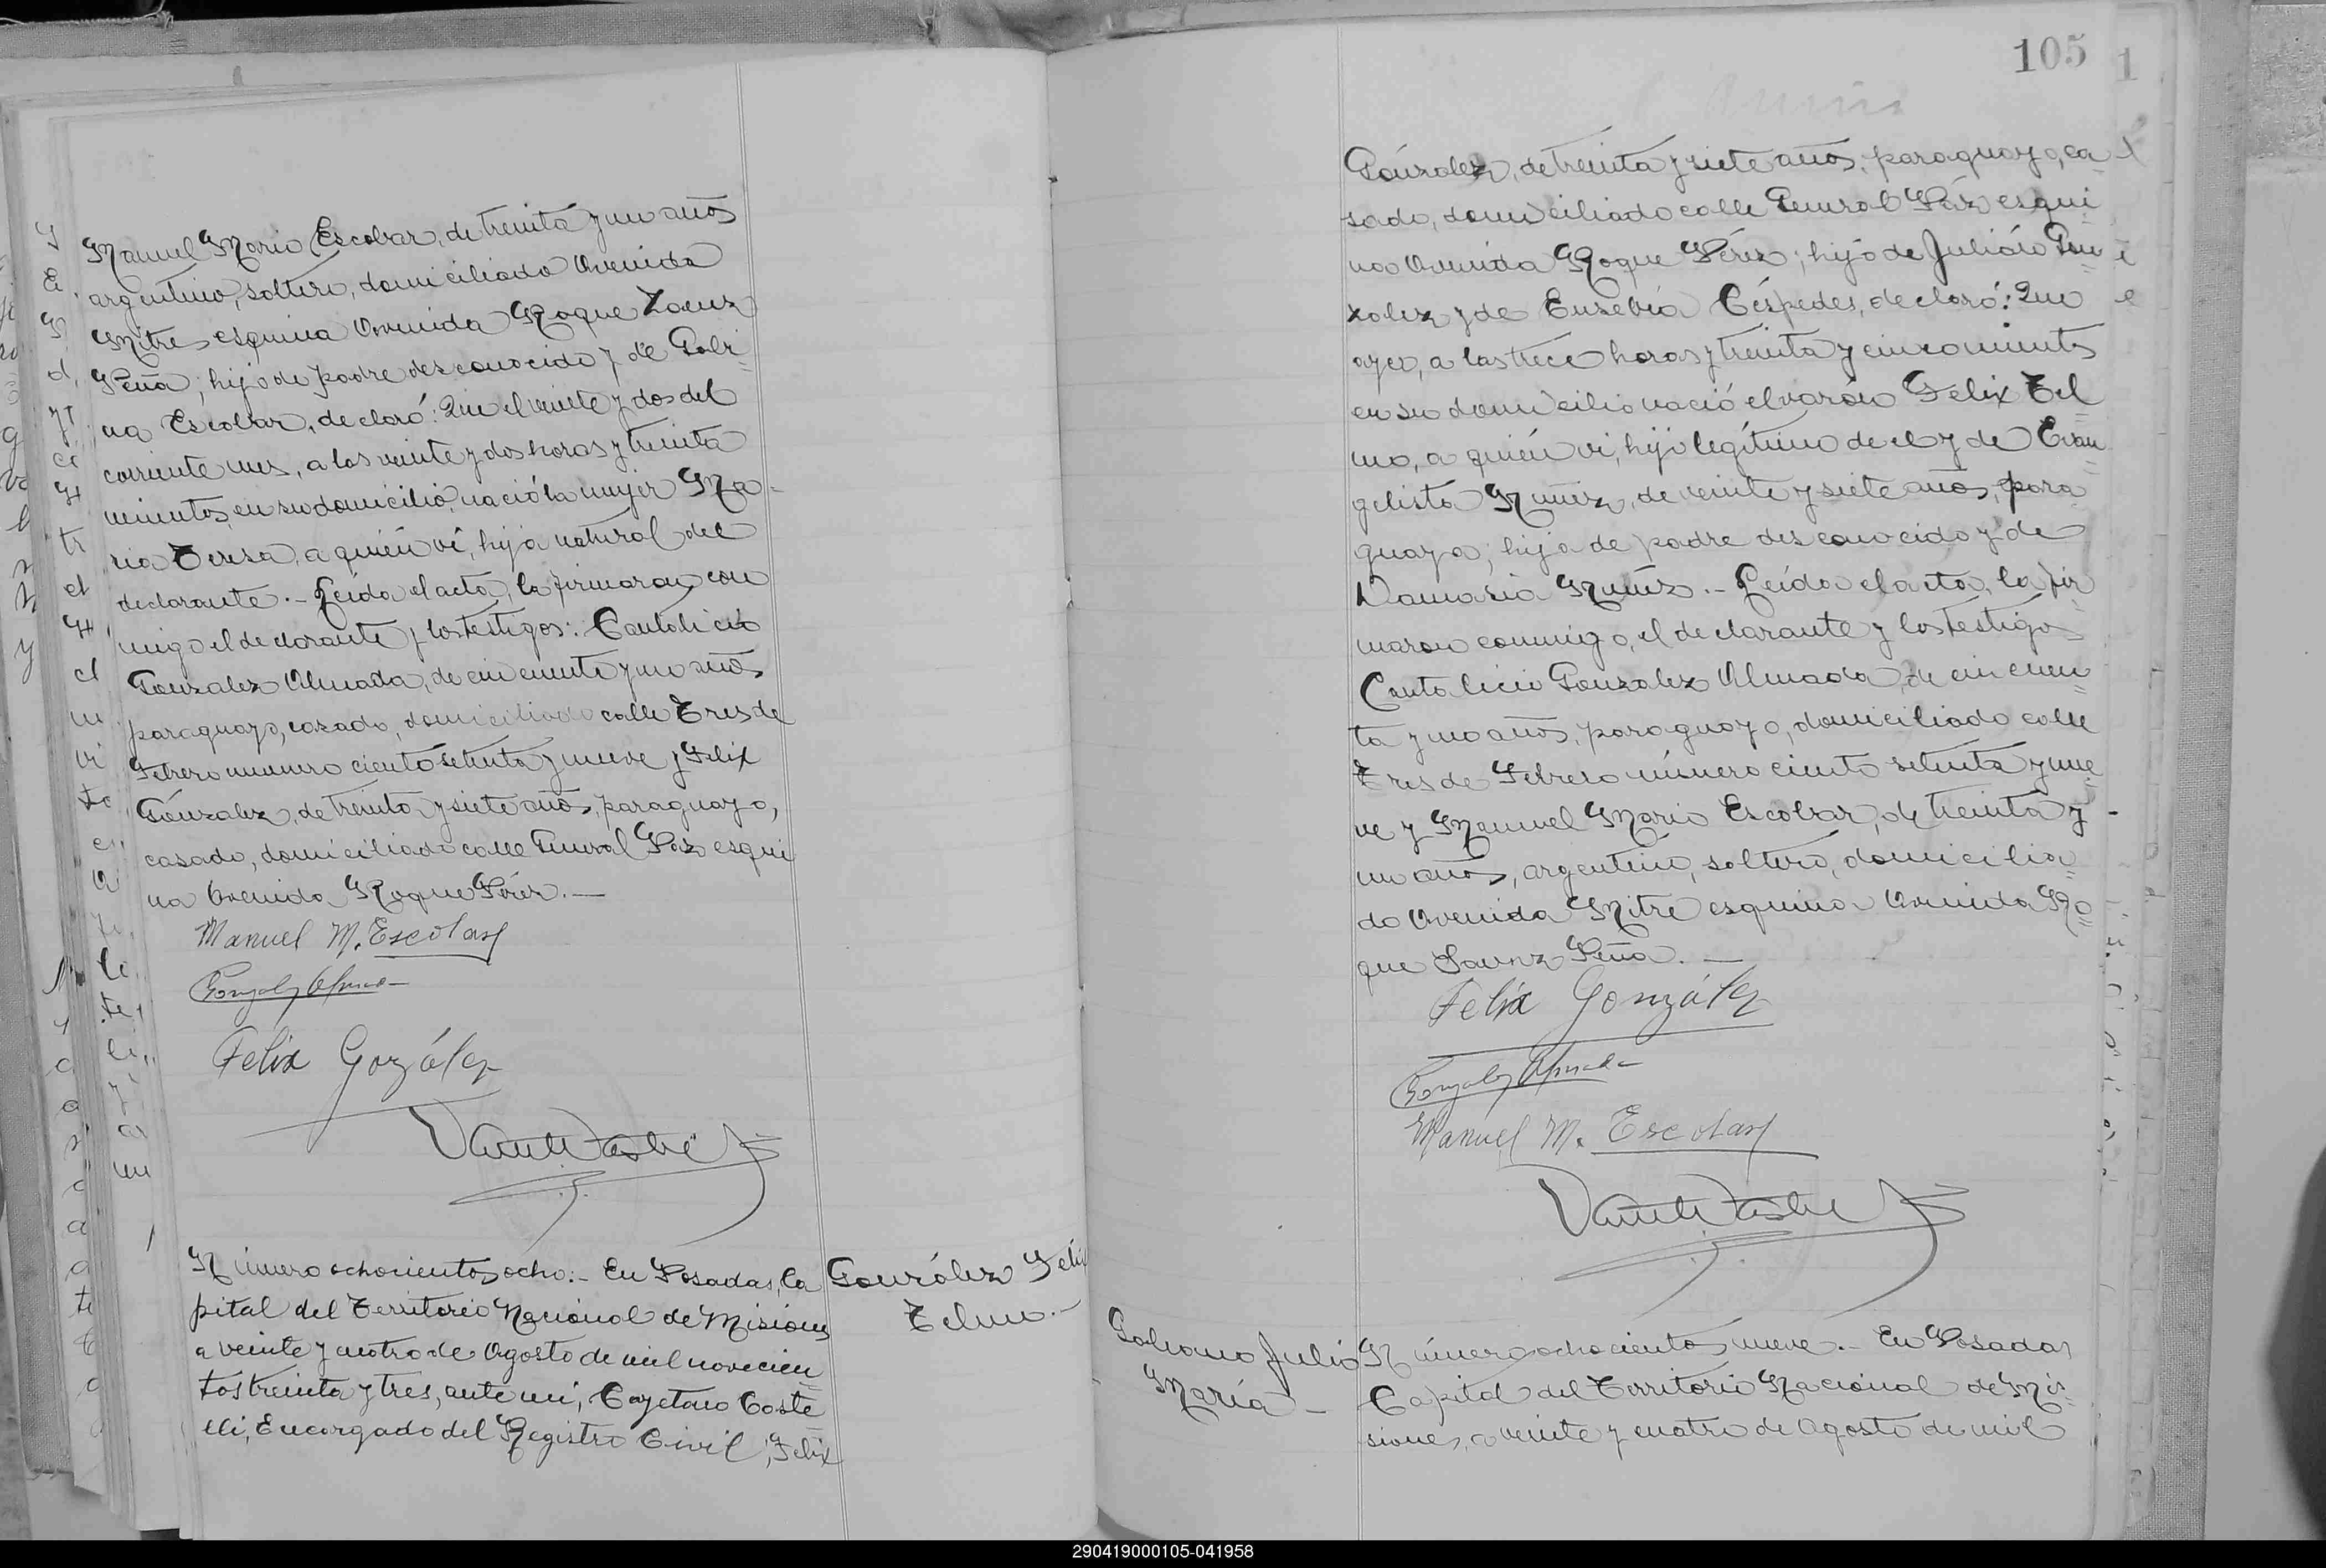 Manuel Mario Escobar, de treinta y un años
argentino, soltero, domiciliado Avenida
Mitre esquina Avenida Roque Zaenz
Peña; hijo de padre desconocido y de Gabi=
na Escobar, declaró: Que el veinte y dos del
corriente mes, a las veinte y dos horas y treinta
minutos, en su domicilio, nació la mujer Ma-
ria Teresa, a quién ví, hija natural del
declarante.- Leída el acta, la firmaron con
migo el declarante y los testigos: Cantalicio
Gonzalez Almada, de cincuenta y un años
paraguayo, casado, domiciliado calle Tres de
Febrero número ciento setenta y nueve y Felix
Gónzalez, de treinta y siete años, paraguayo,
casado, domiciliado calle General Paz esqui
na Avenida Roque Pérez.—
Manuel M. Escobar
Gonzalez Almada
Felix Gozález
Número ochocientos ocho:- En Posadas, Ca
pital del Territorio Nacional de Misiones
a veinte y cuatro de Agosto de mil novecien
tos treinta y tres, ante mi, Cayetano Caste
lli, Encargado del Registro Civil, Felix
Gonzólez Felix
Telmo.-
105
Gónzalez, de treinta y siete años, paraguayo, ca
sado, domiciliado calle General Paz esqui
na Avenida Roque Pérez; hijo de Julián Gon
zalez y de Eusebia Céspedes, declaró: Que
ayer, a las trece horas y treinta y cinco minutos
en su domicilio nació el varón Felix Tel
mo, a quién ví, hijo legítimo de el y de Evan
gelista Nuñez, de veinte y siete años, para
guaya; hija de padre desconocido y de
Damasia Nuñez.- Leída el acta, la fir
maron conmigo, el declarante y los testigos
Cantalicio Gonzalez Almada, de cincuen
ta y un años, paraguayo, domiciliado calle
Tres de Febrero número ciento setenta y nue
ve y Manuel Mario Escobar, de treinta y
un años, argentino, soltero, domicilia
do Avenida Mitre esquina Avenida Ro
que Saenz Peña.—
Felix González
Gonzalez Almada
Manuel M. Escobar
Galeano Julio
María -
Número ochocientos nueve.- En Posadas
Capital del Territorio Nacional de Mi
siones, a veinte y cuatro de Agosto de mil
290419000105-041958